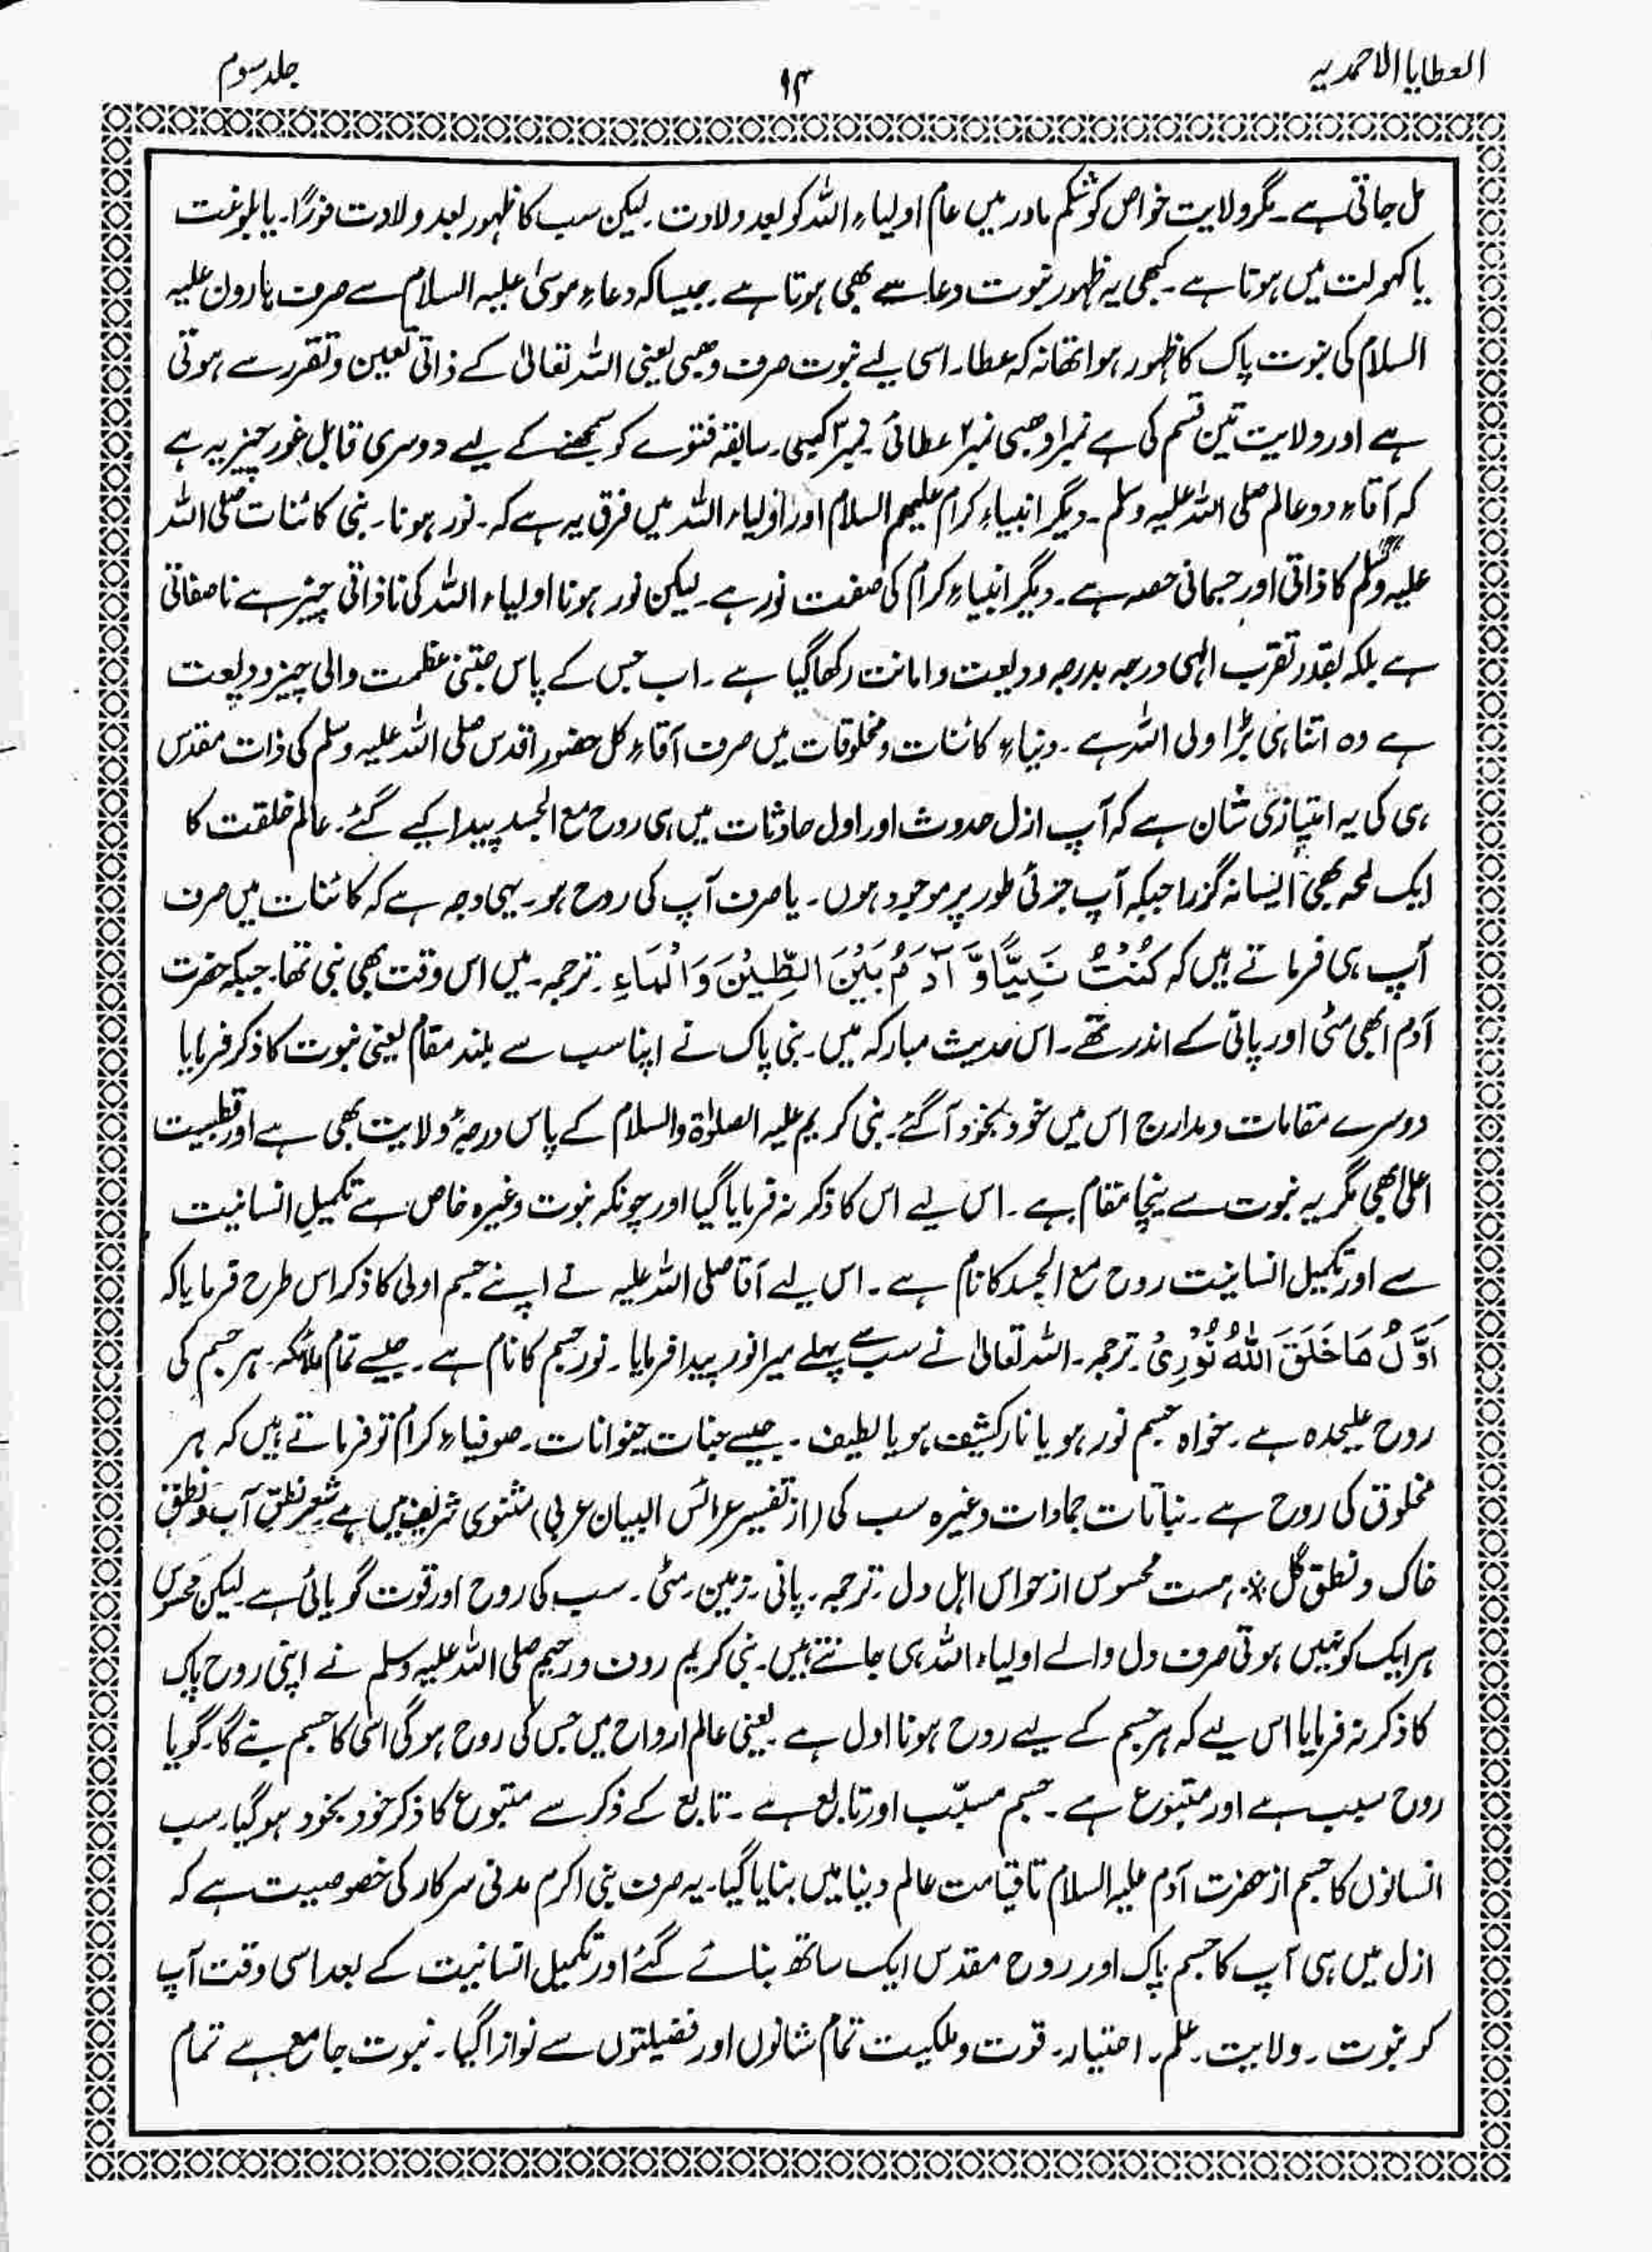 العطایا الاحمدیہ
۱۴
جلد سوم
مل جاتی ہے۔ مگر ولایت خواص کو شکم مادر میں عام اولیاء اللہ کو بعد ولادت۔ لیکن سب کا ظہور بعد ولادت فورًا۔ یا بلوغت
یا کہولت میں ہوتا ہے۔ کبھی یہ ظہور نبوت دعا سے بھی ہوتا ہے۔ جیسا کہ دعاء موسیٰ علیہ السلام سے صرف ہارون علیہ
السلام کی نبوت پاک کا ظہور ہوا تھا نہ کہ عطا۔ اسی لیے نبوت صرف وھبی یعنی اللہ تعالیٰ کے ذاتی تعین و تقرر سے ہوتی
ہے اور ولایت تین قسم کی ہے نمبر۱ وھبی نمبر۲ عطائی۔ نمبر۳ کسبی۔ سابقہ فتوے کو سمجھنے کے لیے دوسری قابل غور چیز یہ ہے
کہ آقاءِ دو عالم صلی اللہ علیہ وسلم۔ دیگر انبیاءِ کرام علیہم السلام اور اولیاء اللہ میں فرق یہ ہے کہ۔ نور ہونا۔ نبی کائنات صلی اللہ
علیہ وسلم کا ذاتی اور جسمانی حصہ ہے۔ دیگر انبیاءِ کرام کی صفت نور ہے۔ لیکن نور ہونا اولیاء اللہ کی نا ذاتی چیز ہے نا صفاتی
ہے بلکہ بقدر تقرب الہی درجہ بدرجہ ودیعت و امانت رکھا گیا ہے۔ اب جس کے پاس جتنی عظمت والی چیز ودیعت
ہے وہ اتنا ہی بڑا ولی اللہ ہے۔ دنیاءِ کائنات و مخلوقات میں صرف آقاءِ کل حضور اقدس صلی اللہ علیہ وسلم کی ذات مقدس
ہی کی یہ امتیازی شان ہے کہ آپ ازل حدوث اور اول حادثات میں ہی روح مع الجسد پیدا کیے گئے۔ عالم خلقت کا
ایک لمحہ بھی ایسا نہ گزرا جبکہ آپ جزئی طور پر موجود ہوں۔ یا صرف آپ کی روح ہو۔ یہی وجہ ہے کہ کائنات میں صرف
آپ ہی فرماتے ہیں کہ کُنْتُ نَبِیًّا وَّ آدَمُ بَیْنَ الطِّیْنَ وَالْمَاءِ۔ ترجمہ۔ میں اس وقت بھی نبی تھا۔ جبکہ حضرت
آدم ابھی مٹی اور پانی کے اندر تھے۔ اس حدیث مبارکہ میں۔ نبی پاک نے اپنا سب سے بلند مقام یعنی نبوت کا ذکر فرمایا
دوسرے مقامات و مدارج اس میں خود بخود آ گئے۔ نبی کریم علیہ الصلوٰۃ والسلام کے پاس درجۂ ولایت بھی ہے اور قطبیت
اعلیٰ بھی مگر یہ نبوت سے نیچا مقام ہے۔ اس لیے اس کا ذکر نہ فرمایا گیا اور چونکہ نبوت وغیرہ خاص ہے تکمیلِ انسانیت
سے اور تکمیل انسانیت روح مع الجسد کا نام ہے۔ اس لیے آقا صلی اللہ علیہ نے اپنے جسم اولیٰ کا ذکر اس طرح فرمایا کہ
اَوَّلُ مَا خَلَقَ اللّٰهُ نُوْرِیْ۔ ترجمہ۔ اللہ تعالیٰ نے سب سے پہلے میرا نور پیدا فرمایا۔ نور جسم کا نام ہے۔ جیسے تمام ملائکہ۔ ہر جسم کی
روح علیحدہ ہے۔ خواہ جسم نور ہو یا نار کثیف ہو یا لطیف۔ جیسے جنات حیوانات۔ صوفیاءِ کرام تو فرماتے ہیں کہ ہر
مخلوق کی روح ہے۔ نباتات جمادات وغیرہ سب کی (از تفسیر عرائس البیان عربی) مثنوی شریف میں ہے شعر نطق آب و نطق
خاک و نطق گل ٭ ہست محسوس از حواس اہل دل۔ ترجمہ۔ پانی۔ زمین۔ مٹی۔ سب کی روح اور قوت گویائی ہے۔ لیکن محسوس
ہر ایک کو نہیں ہوتی صرف دل والے اولیاء اللہ ہی جانتے ہیں۔ نبی کریم رون ورحیم صلی اللہ علیہ وسلم نے اپنی روح پاک
کا ذکر نہ فرمایا اس لیے کہ ہر جسم کے لیے روح ہونا اول ہے۔ یعنی عالم ارواح میں جس کی روح ہو گی اسی کا جسم بنے گا۔ گویا
روح سبب ہے اور متبوع ہے۔ جسم مسبّب اور تابع ہے۔ تابع کے ذکر سے متبوع کا ذکر خود بخود ہو گیا۔ سب
انسانوں کا جسم از حضرت آدم علیہ السلام تا قیامت عالم دنیا میں بنایا گیا۔ یہ صرف نبی اکرم مدنی سرکار کی خصوصیت ہے کہ
ازل میں ہی آپ کا جسم پاک اور روح مقدس ایک ساتھ بنائے گئے اور تکمیل انسانیت کے بعد اسی وقت آپ
کو نبوت۔ ولایت۔ علم۔ اختیار۔ قوت و ملکیت تمام شانوں اور فضیلتوں سے نوازا گیا۔ نبوت جامع ہے تمام